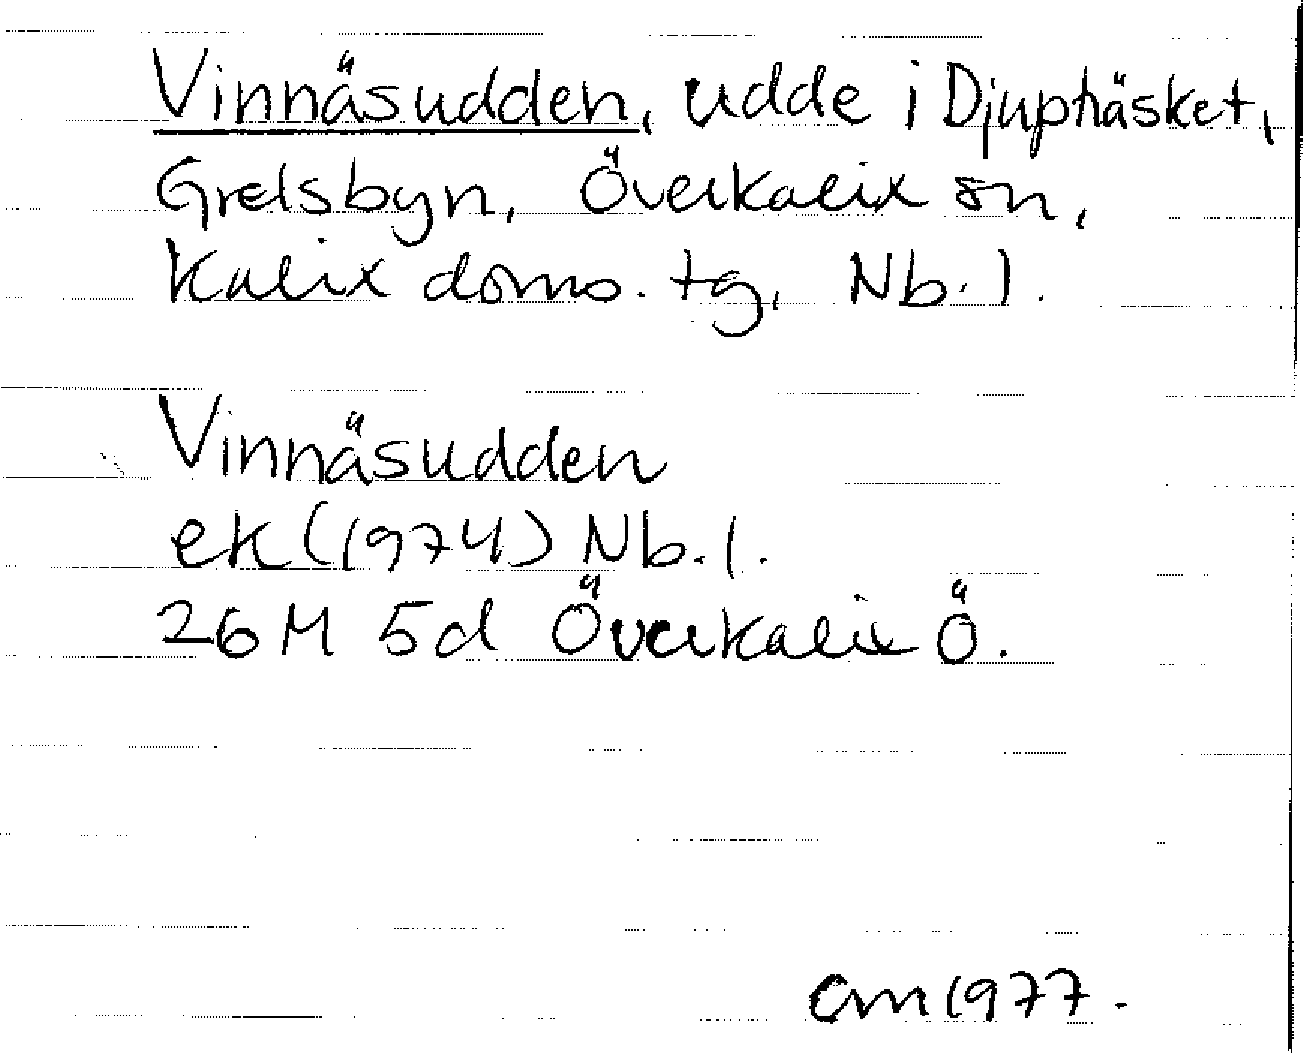 Vinnäsudden, udde i Djupträsket,
Grelsbyn, Överkalix sn,
Kalix doms. tg, Nb. l.
Vinnäsudden
ek (1974) Nb. l.
26 M 5d Överkalix Ö.
Cm 1977.